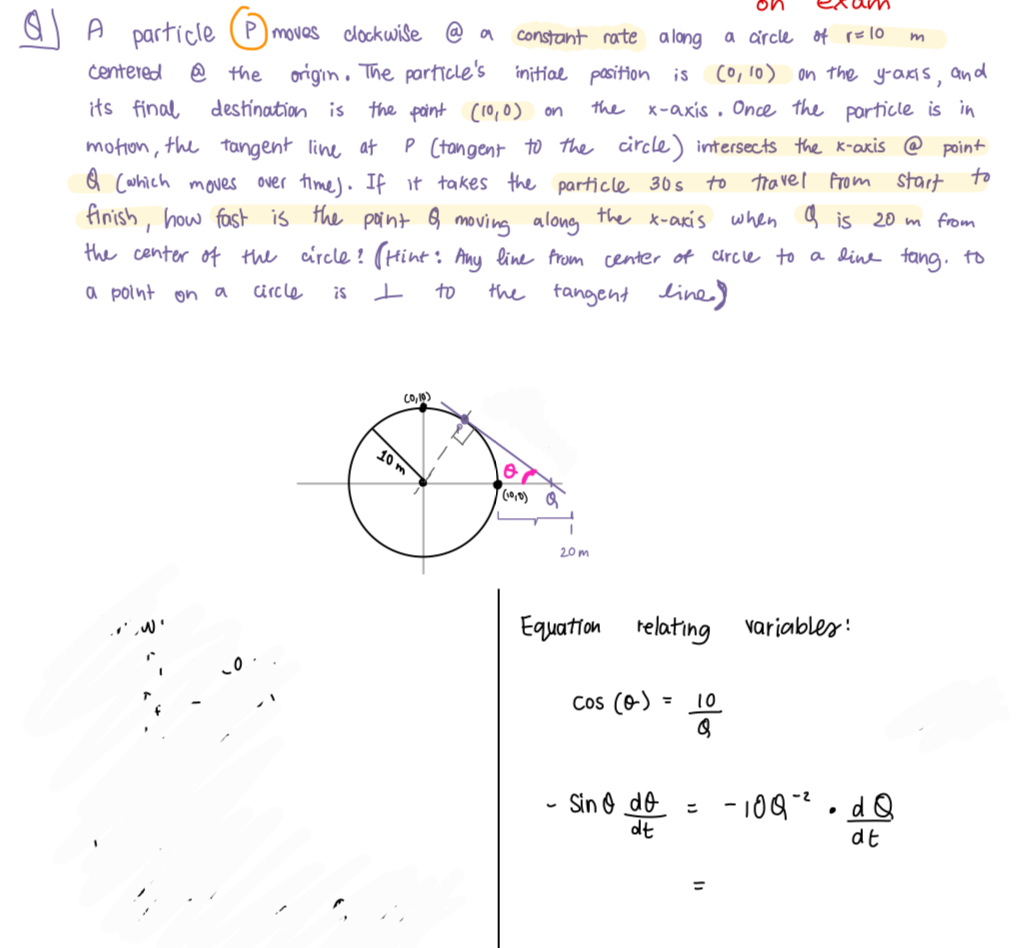 on exam
Q) A particle P moves clockwise @ a constant rate along a circle of r=10 m
centered @ the origin. The particle's initial position is (0,10) on the y-axis, and
its final destination is the point (10,0) on the x-axis. Once the particle is in
motion, the tangent line at P (tangent to the circle) intersects the x-axis @ point
Q (which moves over time). If it takes the particle 30s to travel from start to
finish, how fast is the point Q moving along the x-axis when Q is 20 m from
the center of the circle? (Hint: Any line from center of circle to a line tang. to
a point on a circle is ⊥ to the tangent line.)
(0,10)
P
10 m
θ
(10,0) Q
20 m
Equation relating variables:
cos (θ) = 10/Q
- sin θ dθ/dt = -10Q⁻² · dQ/dt
=